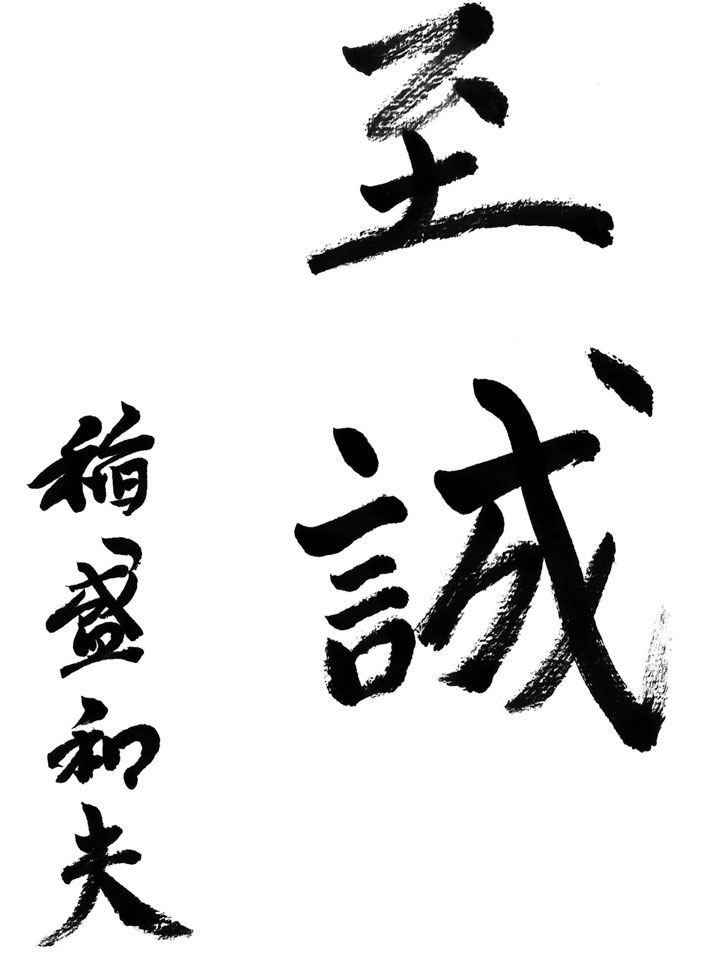 至誠
稲盛和夫